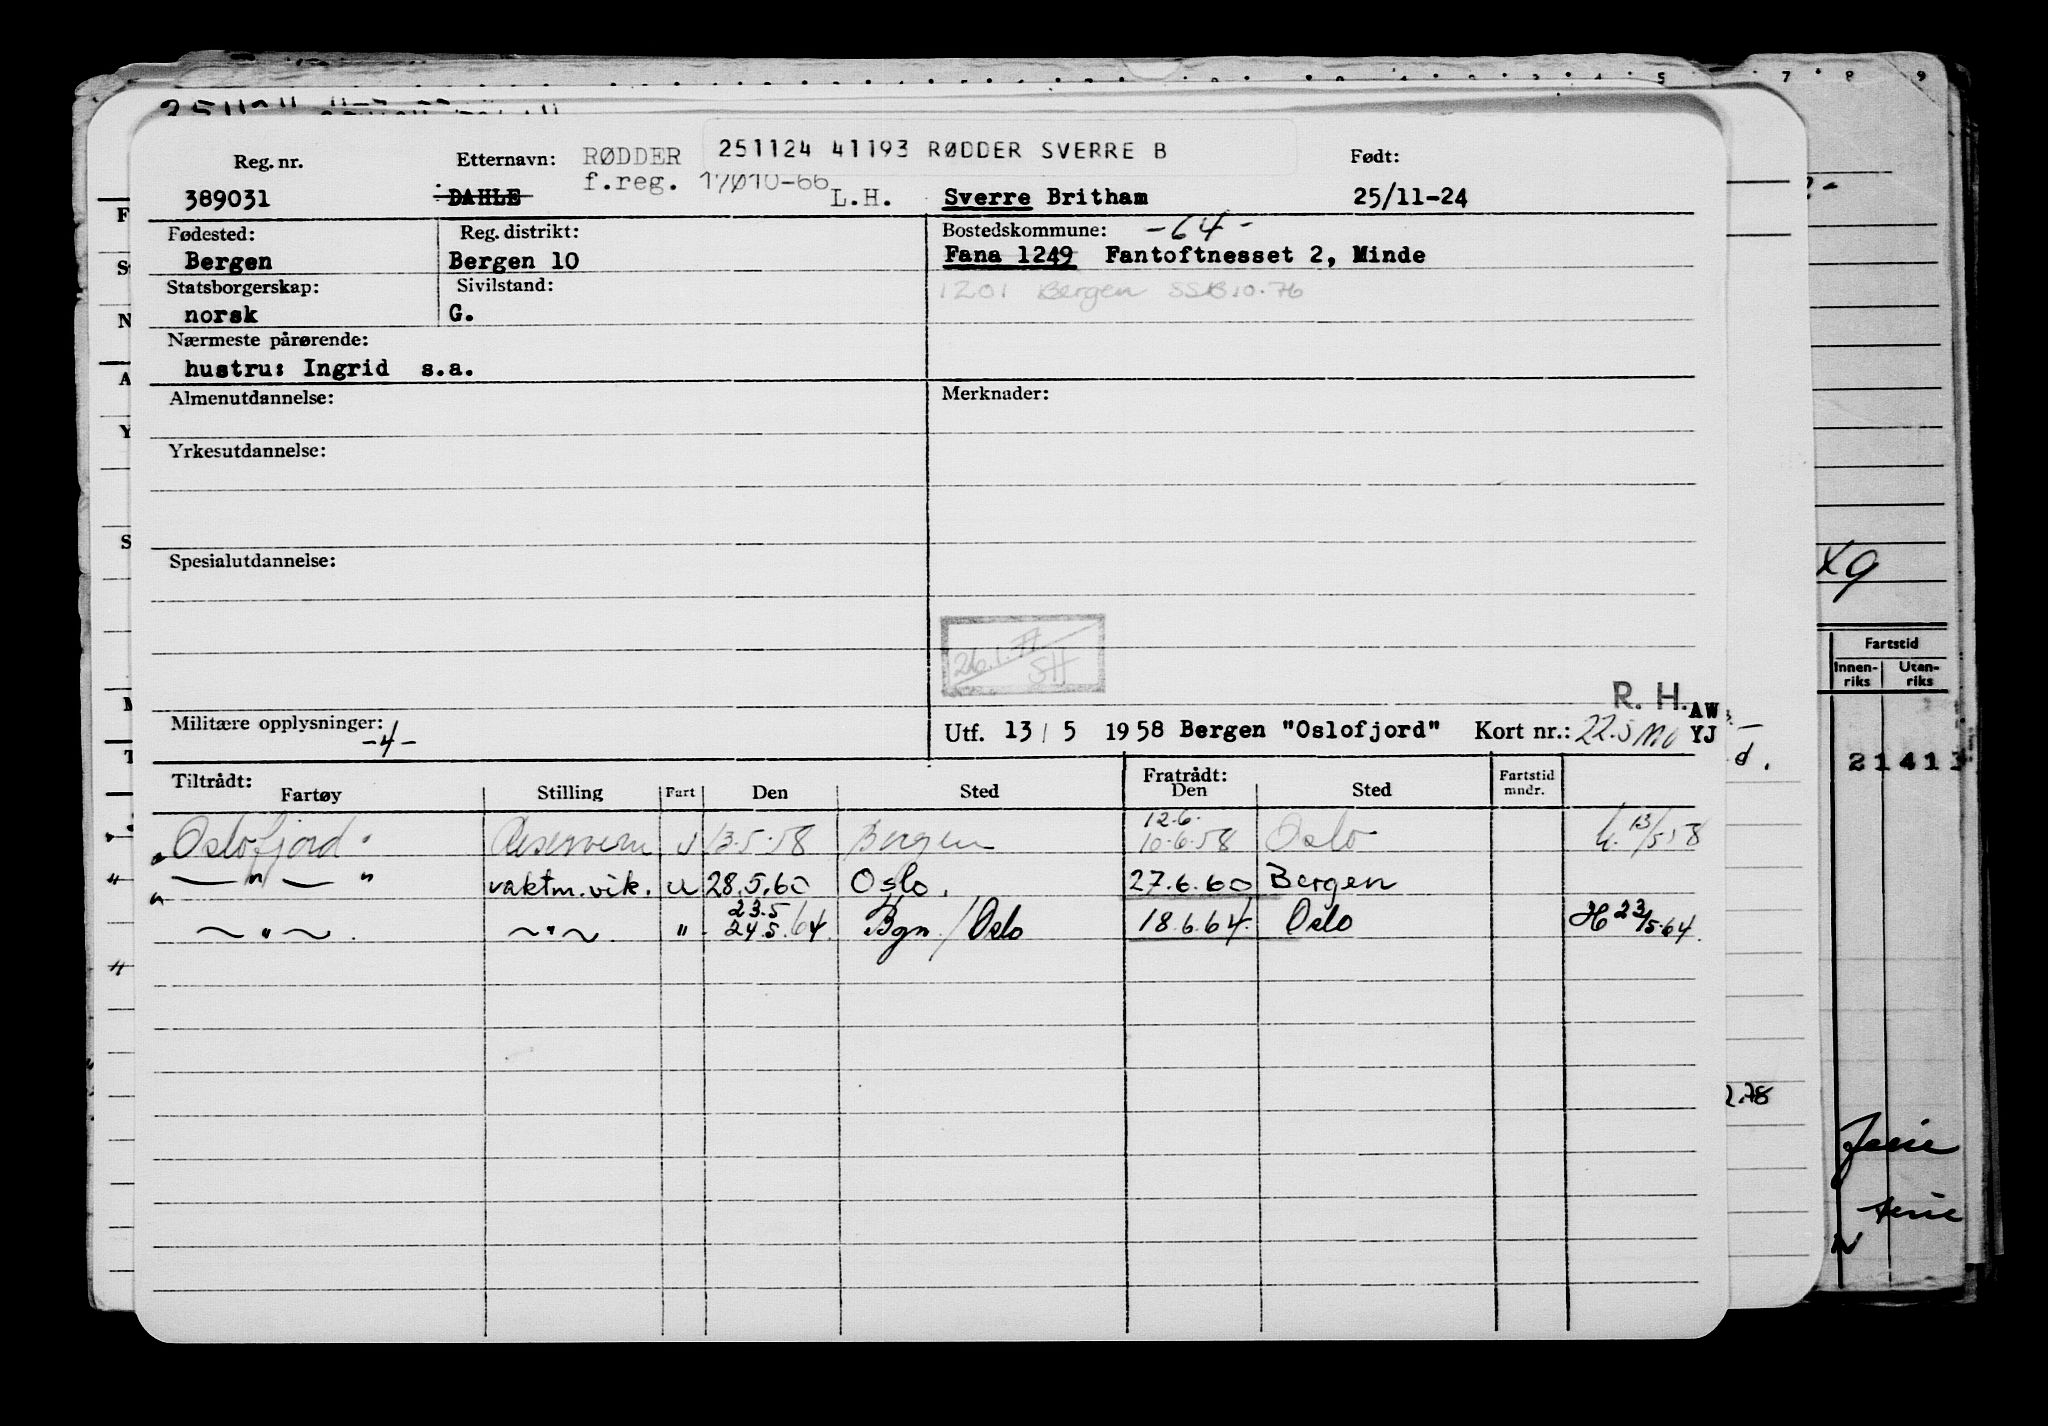 Reg. nr. Etternavn: RØDDER 251124 41193 RØDDER SVERRE B Født:
f.reg. 17010-66
389031 DAHLE L.H. Sverre Britham 25/11-24
Fødested: Reg. distrikt: Bostedskommune: -64-
Bergen Bergen 10 Fana 1249 Fantoftnesset 2, Minde
Statsborgerskap: Sivilstand: 1201 Bergen SSB 10.76
norsk G.
Nærmeste pårørende:
hustru: Ingrid s.a.
Almenutdannelse: Merknader:
Yrkesutdannelse:
Spesialutdannelse:
26.1.77
SH
R. H. AW
Militære opplysninger: -4- Utf. 13 / 5 1958 Bergen "Oslofjord" Kort nr.: YJ
Tiltrådt: Fratrådt:
Fartøy Stilling Fart Den Sted Den Sted Fartstid mndr.
12.6.
Oslofjord u 13.5.58 Bergen 10.6.58 Oslo 13/5 58
— " — " vaktm. vik. u 28.5.60 Oslo. 27.6.60 Bergen
23.5
~ " ~ . ~ " ~ . " 24.5.64. Bgn / Oslo 18.6.64. Oslo H 23/5.64.
Fartstid
Innen-riks Uten-riks
21413
5 7 8 9
xg
d.
2.78